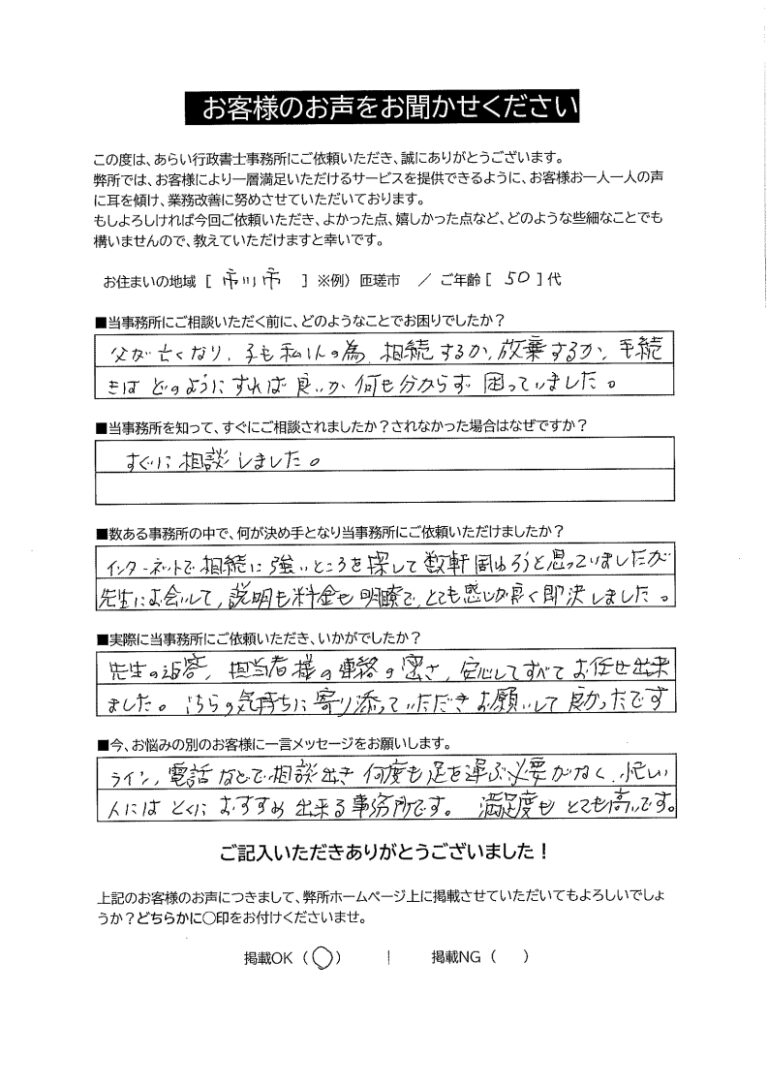 お客様のお声をお聞かせください
この度は、あらい行政書士事務所にご依頼いただき、誠にありがとうございます。
弊所では、お客様により一層満足いただけるサービスを提供できるように、お客様お一人一人の声
に耳を傾け、業務改善に努めさせていただいております。
もしよろしければ今回ご依頼いただき、よかった点、嬉しかった点など、どのような些細なことでも
構いませんので、教えていただけますと幸いです。
お住まいの地域 [ 市川市 ] ※例）匝瑳市 ／ ご年齢 [ 50 ] 代
■当事務所にご相談いただく前に、どのようなことでお困りでしたか？
父が亡くなり、子も私1人の為、相続するか、放棄するか、手続
きは どのようにすれば 良いか 何も分からず 困っていました。
■当事務所を知って、すぐにご相談されましたか？されなかった場合はなぜですか？
すぐに 相談 しました。
■数ある事務所の中で、何が決め手となり当事務所にご依頼いただけましたか？
インターネットで 相続に 強いところを 探して 数軒 回ろうと思っていましたが
先生にお会いして、説明も料金も 明瞭で、とても感じが良く即決しました。
■実際に当事務所にご依頼いただき、いかがでしたか？
先生の返答、担当者様の連絡の密さ、安心してすべてお任せ出来
ました。こちらの気持ちに寄り添っていただきお願いして良かったです
■今、お悩みの別のお客様に一言メッセージをお願いします。
ライン、電話などで相談出き 何度も足を運ぶ必要がなく、忙しい
人にはとくに おすすめ 出来る事務所です。 満足度も とても高いです。
ご記入いただきありがとうございました！
上記のお客様のお声につきまして、弊所ホームページ上に掲載させていただいてもよろしいでしょ
うか？どちらかに〇印をお付けくださいませ。
掲載OK（〇） ｜ 掲載NG（ ）